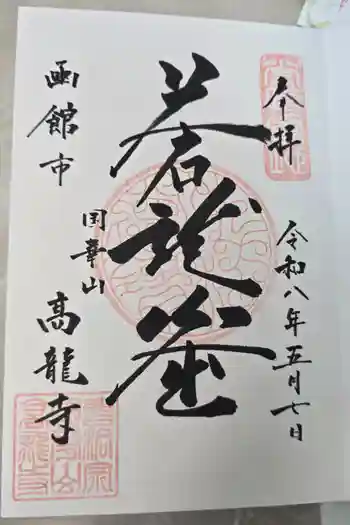 奉拝
令和八年五月七日
蒼龍窟
函館市
国華山
高龍寺